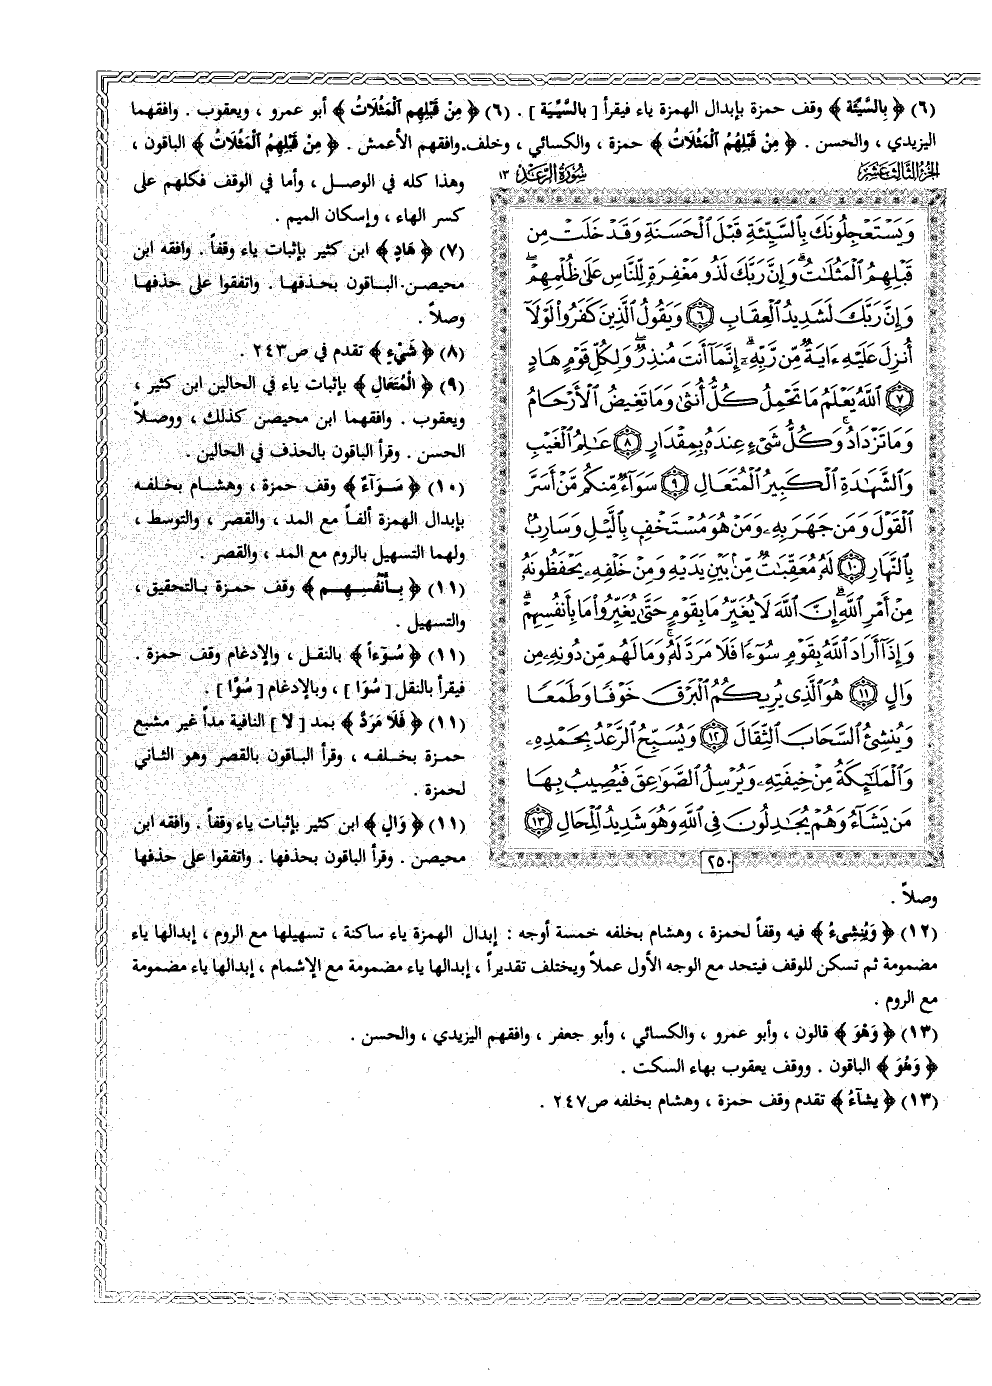 (٦) ﴿ بِالسَّيِّئَة ﴾ وقف حمزة بإبدال الهمزة ياء فيقرأ [ بالسَّيِّيَة ] . (٦) ﴿ مِنْ قَبْلِهِم الْمَثُلَاتُ ﴾ أبو عمرو ، ويعقوب . وافقهما
اليزيدي ، والحسن . ﴿ مِنْ قَبْلِهُمُ الْمَثُلَاتُ ﴾ حمزة ، والكسائي ، وخلف. وافقهم الأعمش . ﴿ مِنْ قَبْلِهِمُ الْمَثُلَاتُ ﴾ الباقون ،
الجزء الثالث عشر
سُورَةُ الرَّعْد ١٣
وَيَسْتَعْجِلُونَكَ بِالسَّيِّئَةِ قَبْلَ الْحَسَنَةِ وَقَدْ خَلَتْ مِن
قَبْلِهِمُ الْمَثُلَاتُ وَإِنَّ رَبَّكَ لَذُو مَغْفِرَةٍ لِّلنَّاسِ عَلَى ظُلْمِهِمْ
وَإِنَّ رَبَّكَ لَشَدِيدُ الْعِقَابِ ٦ وَيَقُولُ الَّذِينَ كَفَرُوا لَوْلَا
أُنزِلَ عَلَيْهِ ءَايَةٌ مِّن رَّبِّهِ إِنَّمَا أَنتَ مُنذِرٌ وَلِكُلِّ قَوْمٍ هَادٍ
٧ اللَّهُ يَعْلَمُ مَا تَحْمِلُ كُلُّ أُنثَى وَمَا تَغِيضُ الْأَرْحَامُ
وَمَا تَزْدَادُ وَكُلُّ شَيْءٍ عِندَهُ بِمِقْدَارٍ ٨ عَالِمُ الْغَيْبِ
وَالشَّهَادَةِ الْكَبِيرُ الْمُتَعَالِ ٩ سَوَاءٌ مِّنكُم مَّنْ أَسَرَّ
الْقَوْلَ وَمَن جَهَرَ بِهِ وَمَنْ هُوَ مُسْتَخْفٍ بِاللَّيْلِ وَسَارِبٌ
بِالنَّهَارِ ١٠ لَهُ مُعَقِّبَاتٌ مِّنْ بَيْنِ يَدَيْهِ وَمِنْ خَلْفِهِ يَحْفَظُونَهُ
مِنْ أَمْرِ اللَّهِ إِنَّ اللَّهَ لَا يُغَيِّرُ مَا بِقَوْمٍ حَتَّى يُغَيِّرُوا مَا بِأَنفُسِهِمْ
وَإِذَا أَرَادَ اللَّهُ بِقَوْمٍ سُوءًا فَلَا مَرَدَّ لَهُ وَمَا لَهُم مِّن دُونِهِ مِن
وَالٍ ١١ هُوَ الَّذِي يُرِيكُمُ الْبَرْقَ خَوْفًا وَطَمَعًا
وَيُنشِئُ السَّحَابَ الثِّقَالَ ١٢ وَيُسَبِّحُ الرَّعْدُ بِحَمْدِهِ
وَالْمَلَائِكَةُ مِنْ خِيفَتِهِ وَيُرْسِلُ الصَّوَاعِقَ فَيُصِيبُ بِهَا
مَن يَشَاءُ وَهُمْ يُجَادِلُونَ فِي اللَّهِ وَهُوَ شَدِيدُ الْمِحَالِ ١٣
٢٥٠
وهذا كله في الوصل ، وأما في الوقف فكلهم على
كسر الهاء ، وإسكان الميم .
(٧) ﴿ هَادٍ ﴾ ابن كثير بإثبات ياء وقفاً . وافقه ابن
محيصن. الباقون بحذفها . واتفقوا على حذفها
وصلاً .
(٨) ﴿ شَيْءٍ ﴾ تقدم في ص٢٤٣ .
(٩) ﴿ الْمُتَعَالِ ﴾ بإثبات ياء في الحالين ابن كثير ،
ويعقوب . وافقهما ابن محيصن كذلك ، ووصلاً
الحسن . وقرأ الباقون بالحذف في الحالين .
(١٠) ﴿ سَوَآءٌ ﴾ وقف حمزة ، وهشام بخلفه
بإبدال الهمزة ألفاً مع المد ، والقصر ، والتوسط ،
ولهما التسهيل بالروم مع المد ، والقصر .
(١١) ﴿ بِأَنْفُسِهِم ﴾ وقف حمزة بالتحقيق ،
والتسهيل .
(١١) ﴿ سُوٓءاً ﴾ بالنقل ، والإدغام وقف حمزة .
فيقرأ بالنقل [ سُوَا ] ، وبالإدغام [ سُوَّا ] .
(١١) ﴿ فَلَا مَرَدَّ ﴾ بمد [ لا ] النافية مداً غير مشبع
حمزة بخلفه ، وقرأ الباقون بالقصر وهو الثاني
لحمزة .
(١١) ﴿ وَالٍ ﴾ ابن كثير بإثبات ياء وقفاً . وافقه ابن
محيصن . وقرأ الباقون بحذفها . واتفقوا على حذفها
وصلاً .
(١٢) ﴿ وَيُنْشِىءُ ﴾ فيه وقفاً لحمزة ، وهشام بخلفه خمسة أوجه : إبدال الهمزة ياء ساكنة ، تسهيلها مع الروم ، إبدالها ياء
مضمومة ثم تسكن للوقف فيتحد مع الوجه الأول عملاً ويختلف تقديراً ، إبدالها ياء مضمومة مع الإشمام ، إبدالها ياء مضمومة
مع الروم .
(١٣) ﴿ وَهْوَ ﴾ قالون ، وأبو عمرو ، والكسائي ، وأبو جعفر ، وافقهم اليزيدي ، والحسن .
﴿ وَهُوَ ﴾ الباقون . ووقف يعقوب بهاء السكت .
(١٣) ﴿ يشآءُ ﴾ تقدم وقف حمزة ، وهشام بخلفه ص٢٤٧ .